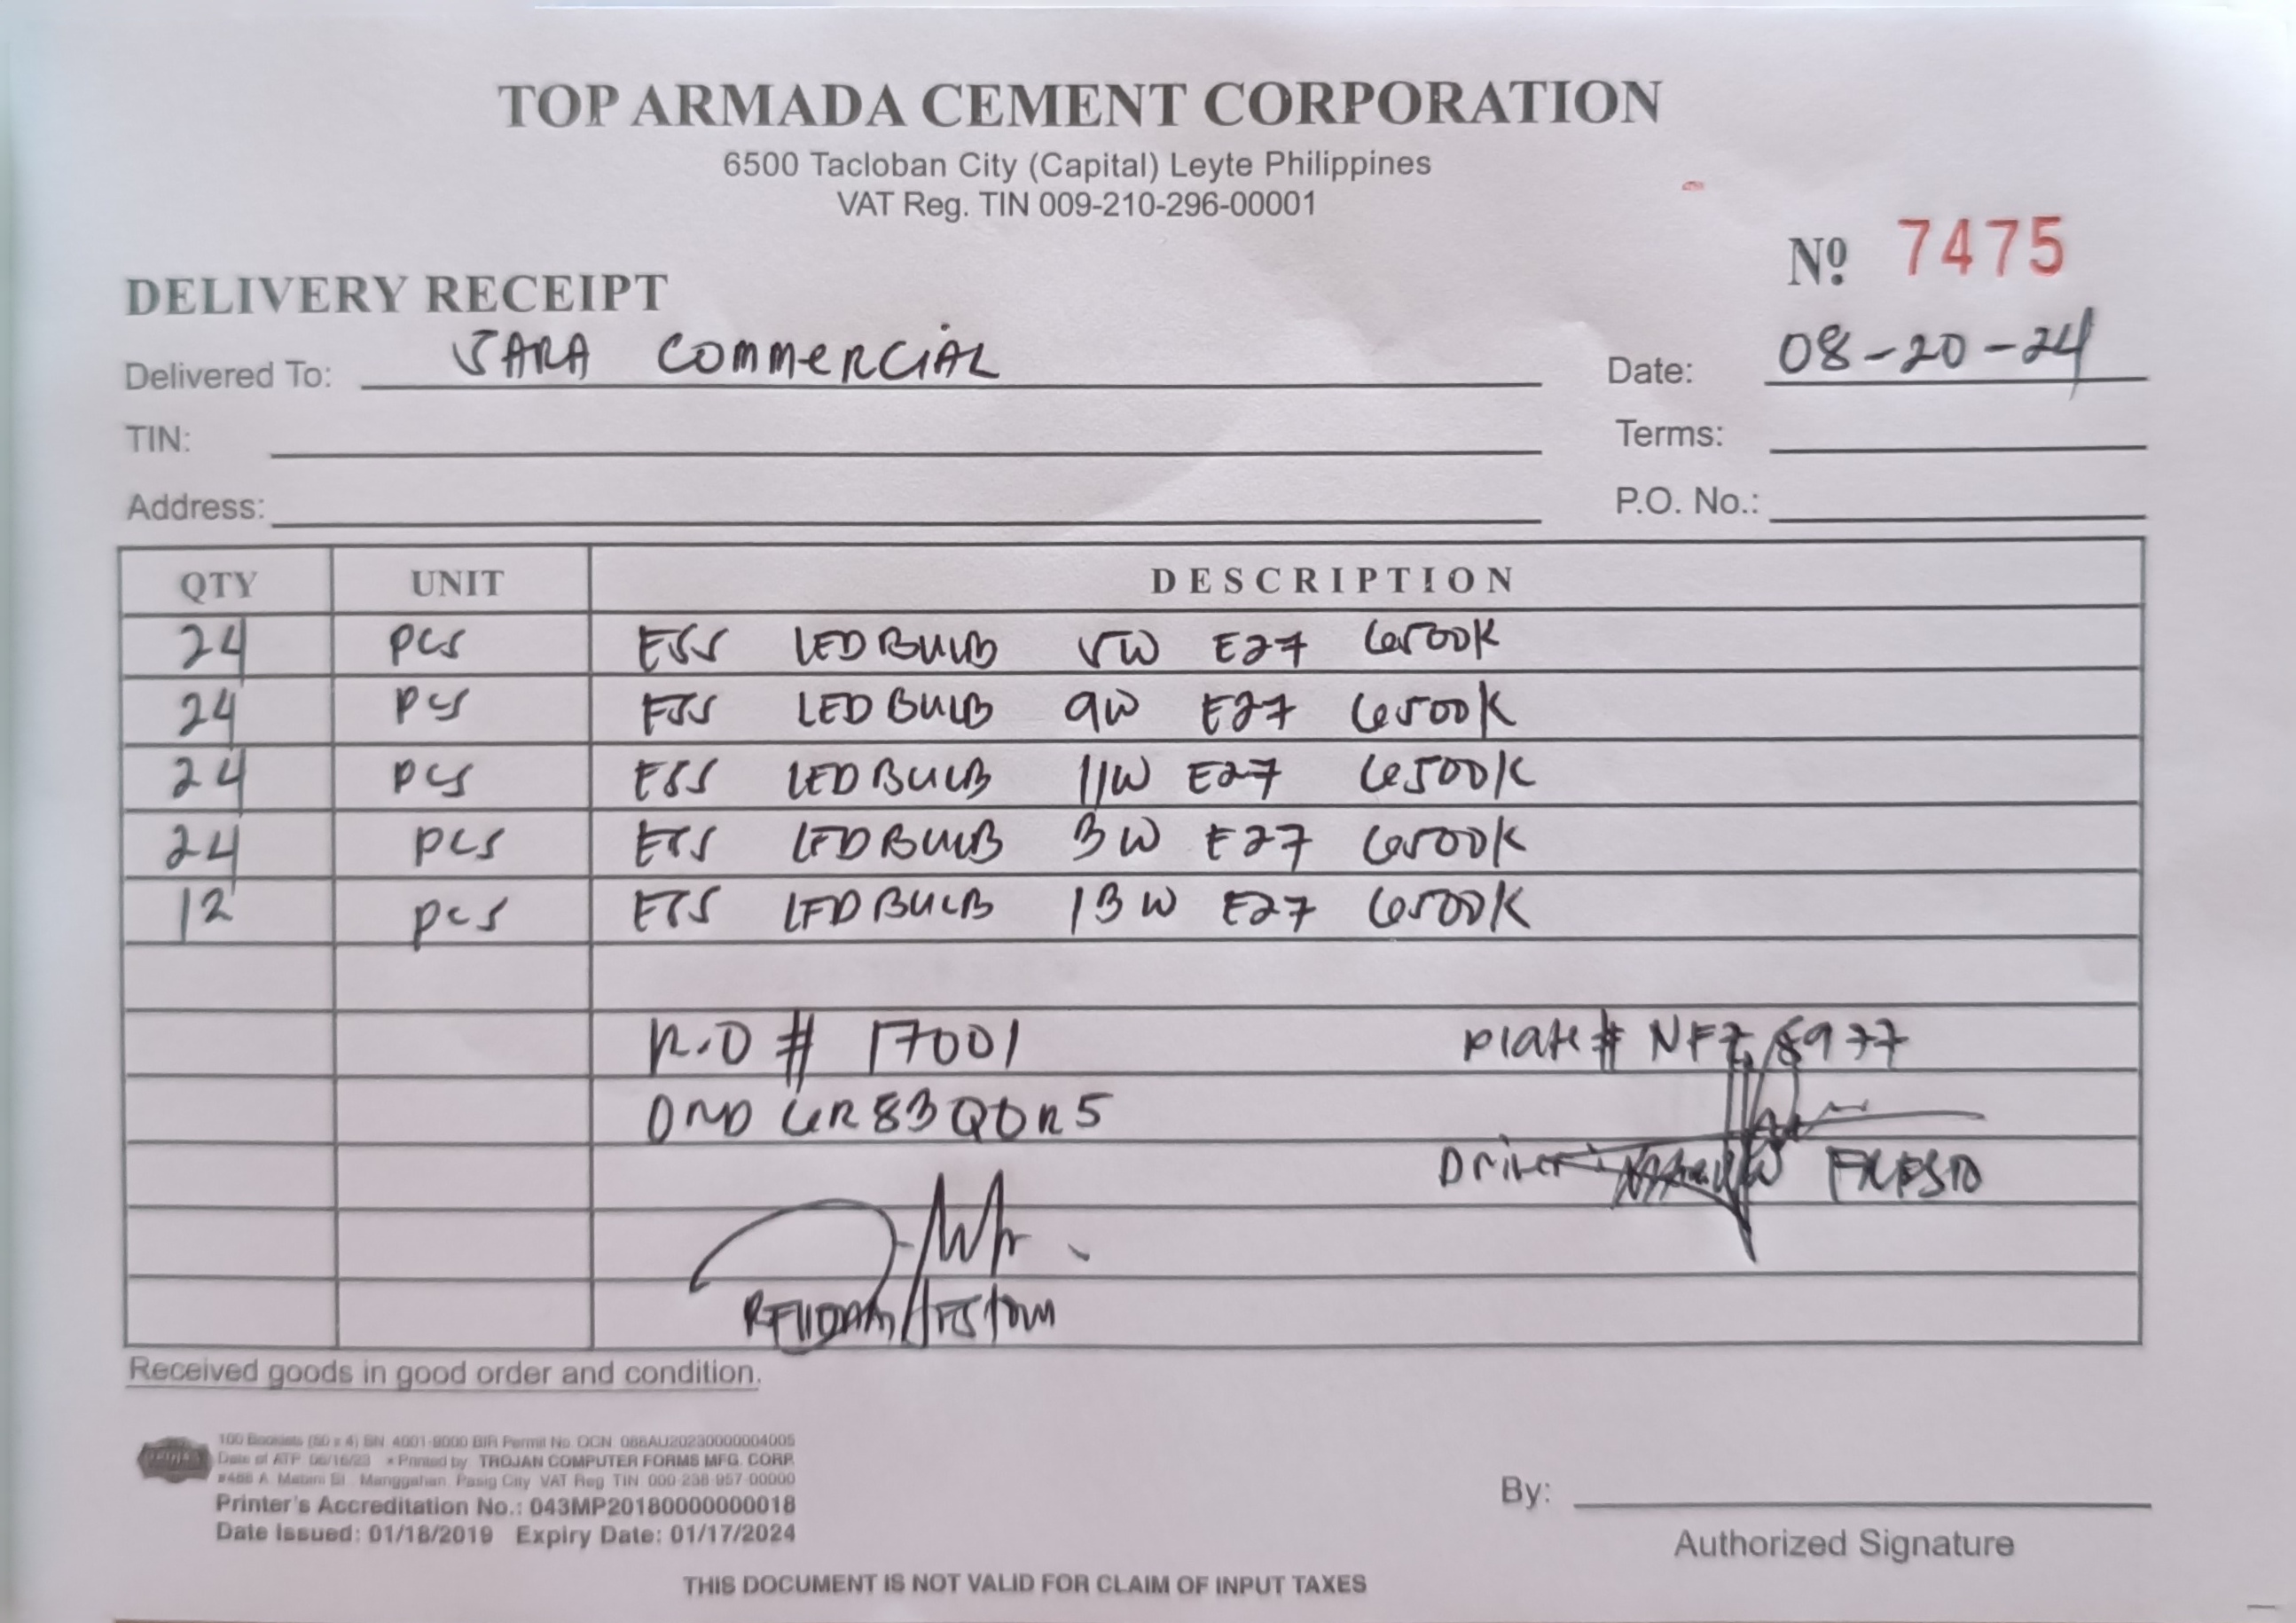 TOP ARMADA CEMENT CORPORATION
6500 Tacloban City (Capital) Leyte Philippines
VAT Reg. TIN 009-210-296-00001
Nº 7475
DELIVERY RECEIPT
Delivered To: SARA COMMERCIAL Date: 08-20-24
TIN: Terms:
Address: P.O. No.:
QTY UNIT DESCRIPTION
24 pcs ESS LED BULB 5W E27 6500K
24 pcs ESS LED BULB 9W E27 6500K
24 pcs ESS LED BULB 11W E27 6500K
24 pcs ESS LED BULB 3W E27 6500K
12 pcs ESS LED BULB 13W E27 6500K
R.O # 17001 Plate # NFZ 8977
Driver:
Received goods in good order and condition.
100 Booklets (50 x 4) SN. 4001-9000 BIR Permit No. OCN 088AU20230000004005
Date of ATP 06/16/23 * Printed by TROJAN COMPUTER FORMS MFG. CORP.
#466 A. Mabini St. Manggahan, Pasig City VAT Reg TIN 000-238-957-00000
Printer's Accreditation No.: 043MP20180000000018
Date Issued: 01/18/2019 Expiry Date: 01/17/2024
By:
Authorized Signature
THIS DOCUMENT IS NOT VALID FOR CLAIM OF INPUT TAXES